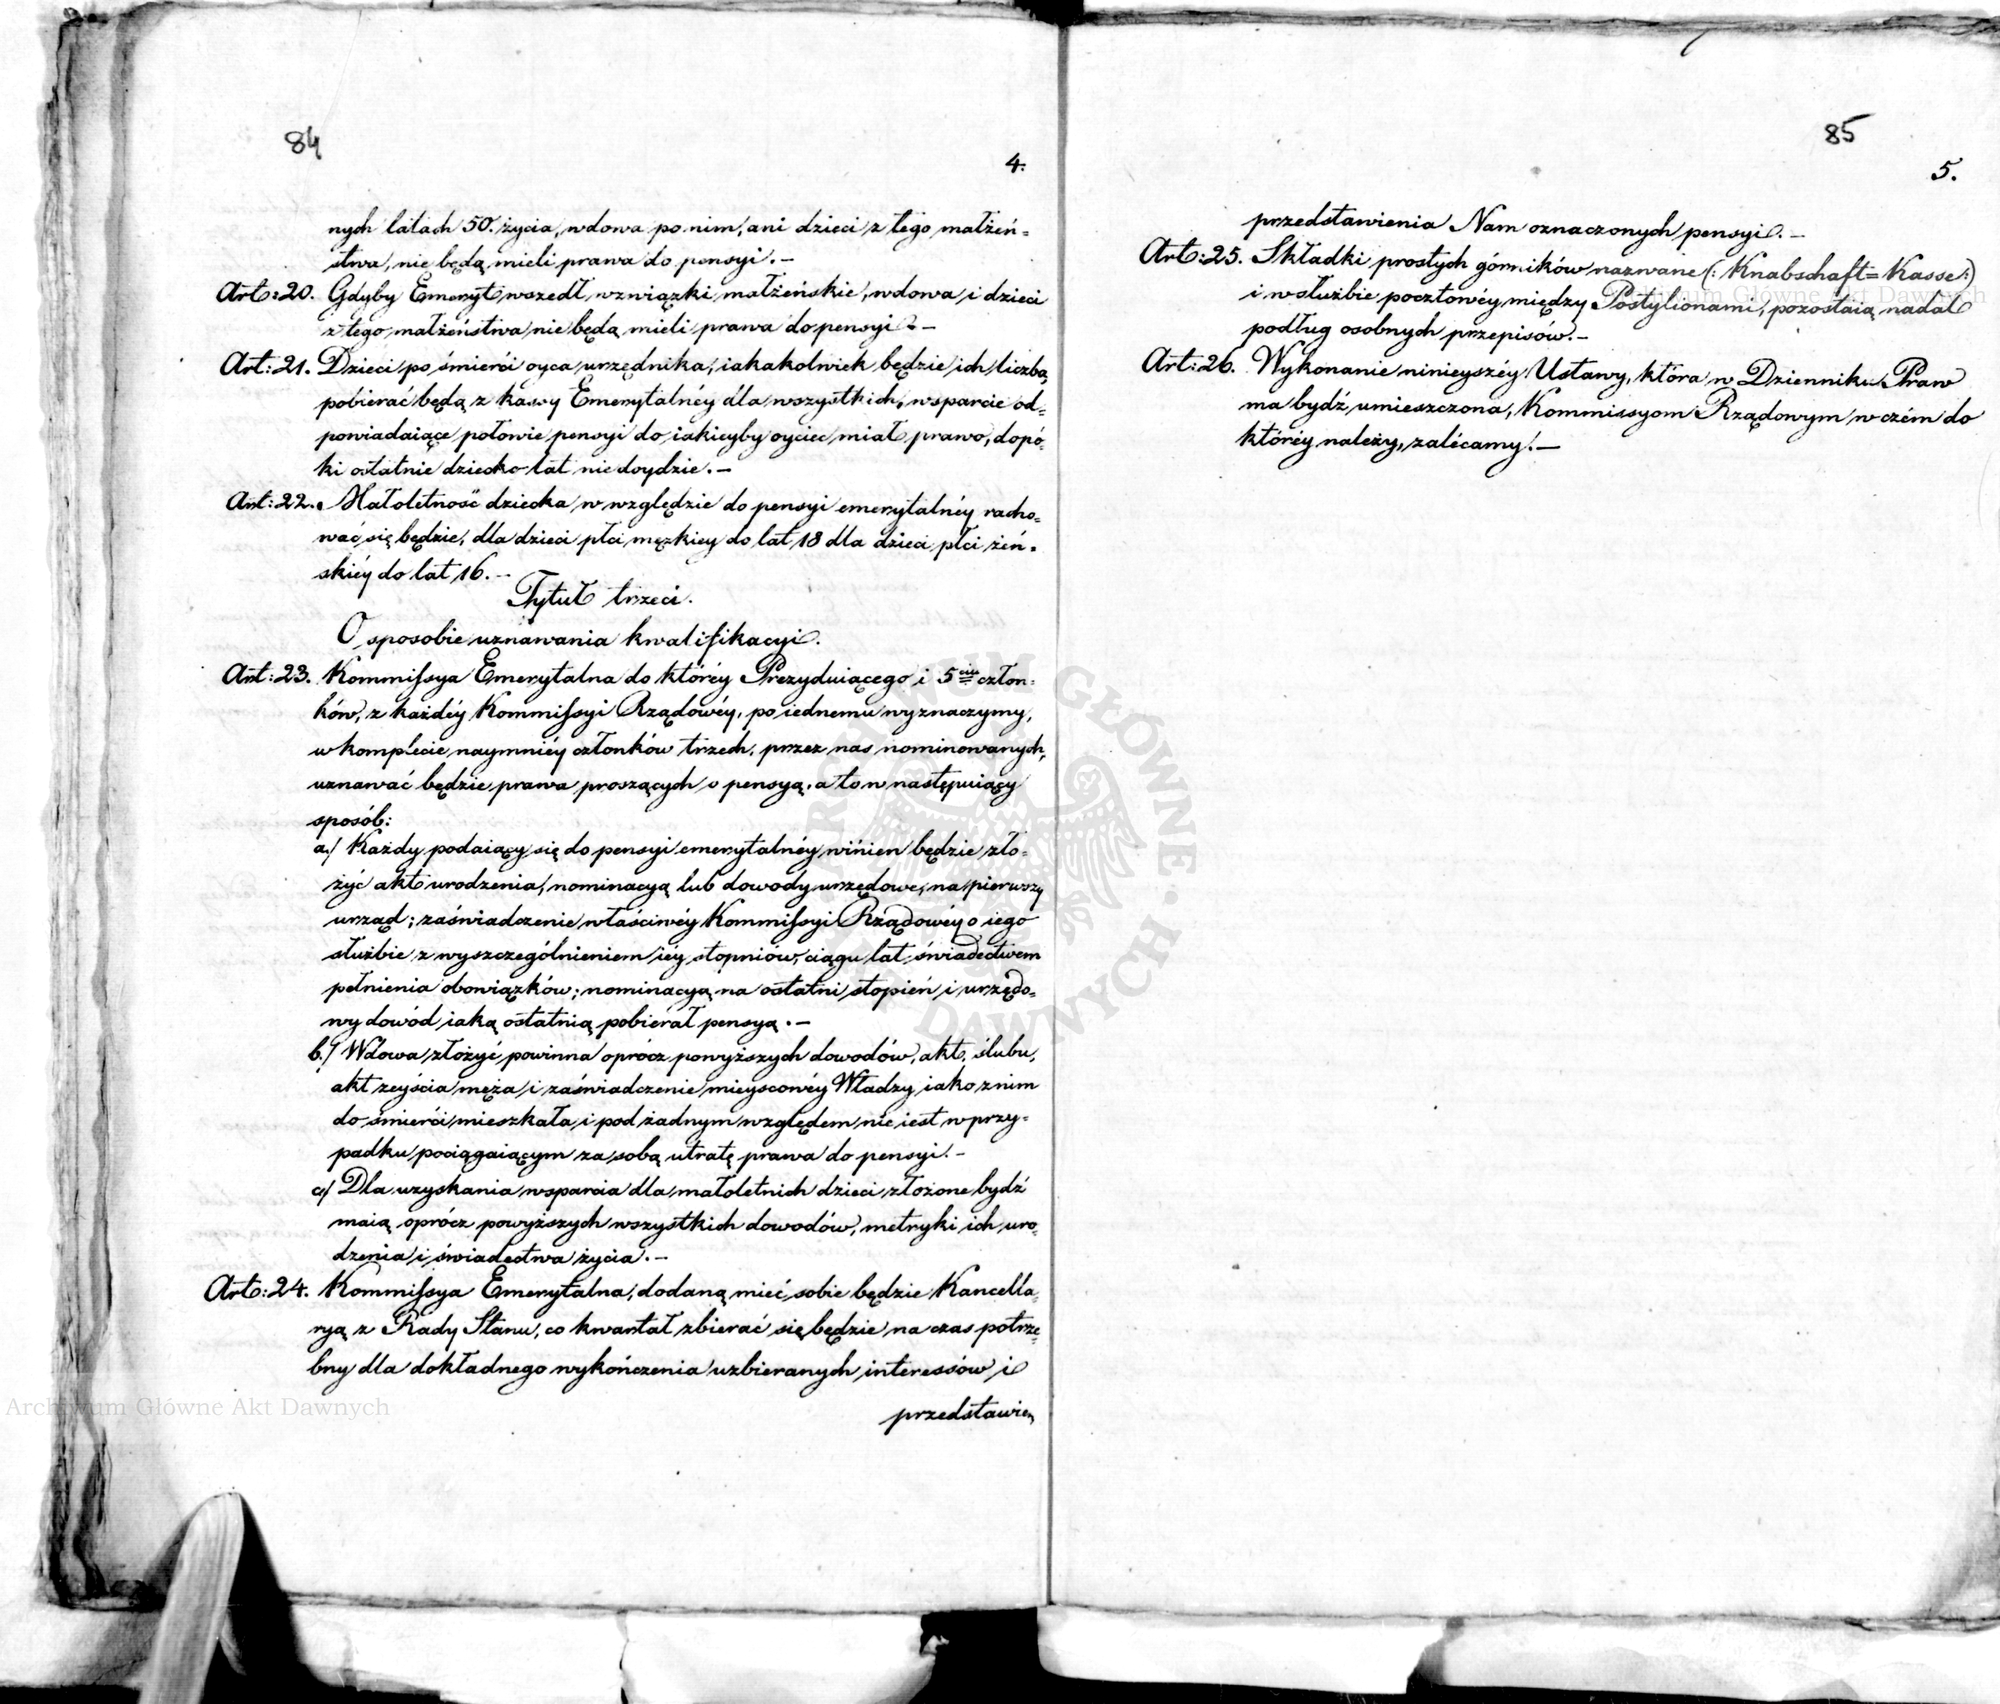 84
4.
nych latach 50. życia, wdowa po nim, ani dzieci z tego małżeń=
stwa, nie będą mieli prawa do pensyi.—
Art: 20. Gdyby Emeryt wszedł w związki małżeńskie, wdowa i dzieci
z tego małżeństwa nie będą mieli prawa do pensyi.—
Art: 21. Dzieci po śmierci oyca urzędnika, iakakolwiek będzie ich liczba,
pobierać będą z kassy Emerytalnéy dla wszystkich, wsparcie od=
powiadaiące połowie pensyi do iakieyby oyciec miał prawo, dopó=
ki ostatnie dziecko lat nie doydzie.—
Art: 22. Małoletność dziecka w względzie do pensyi emerytalnéy racho=
wać się będzie, dla dzieci płci męzkiey do lat 18 dla dzieci płci żeń=
skiéy do lat 16.—
Tytuł trzeci.
O sposobie uznawania kwalifikacyi.
Art: 23. Kommissya Emerytalna do któréy Prezyduiącego i 5ciu człon=
ków, z każdéy Kommissyi Rządowéy, po iednemu wyznaczymy,
w komplecie naymniéy członków trzech, przez nas nominowanych,
uznawać będzie prawa proszących o pensyą, a to w następuiący
sposób:
a./ Każdy podaiący się do pensyi emerytalnéy winien będzie zło=
żyć akt urodzenia, nominacyą lub dowody urzędowe, na pierwszy
urząd; zaświadczenie właściwéy Kommissyi Rządowéy o iego
służbie z wyszczególnieniem iéy stopniów, ciągu lat, świadectwem
pełnienia obowiązków; nominacyą na ostatni stopień i urzędo=
wy dowód iaką ostatnią pobierał pensyą.—
b./ Wdowa złożyć powinna oprócz powyższych dowodów, akt, ślubu,
akt zeyścia męża i zaświadczenie mieyscowéy Władzy, iako z nim
do śmierci mieszkała i pod żadnym względem nie iest w przy=
padku pociągaiącym za sobą utratę prawa do pensyi.—
c/ Dla uzyskania wsparcia dla małoletnich dzieci złożone bydź
maią oprócz powyższych wszystkich dowodów, metryki ich uro=
dzenia i świadectwa życia.—
Art: 24. Kommissya Emerytalna, dodaną mieć sobie będzie Kancella=
ryą z Rady Stanu, co kwartał zbierać się będzie na czas potrze=
bny dla dokładnego wykończenia uzbieranych interessów i
przedstawien
85
5.
przedstawienia Nam oznaczonych pensyi.—
Art: 25. Składki prostych górników nazwane (: Knabschaft=Kasse:)
i w służbie pocztowéy między Postylionami, pozostaią nadal
podług osobnych przepisów.—
Art: 26. Wykonanie ninieyszéy Ustawy, która w Dzienniku Praw
ma bydź umieszczona, Kommissyom Rządowym w czém do
któréy należy, zalécamy.—
Archiwum Główne Akt Dawnych
Archiwum Główne Akt Dawnych
ARCHIWUM GŁÓWNE · AKT DAWNYCH ·